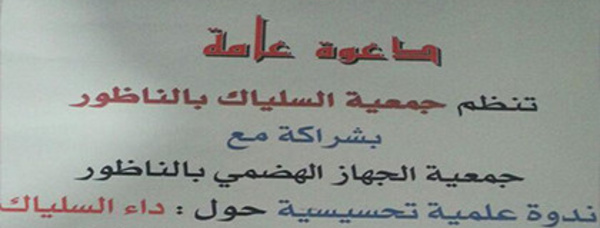 دعوة عامة
تنظم جمعية السلياك بالناظور
بشراكة مع
جمعية الجهاز الهضمي بالناظور
ندوة علمية تحسيسية حول : داء السلياك